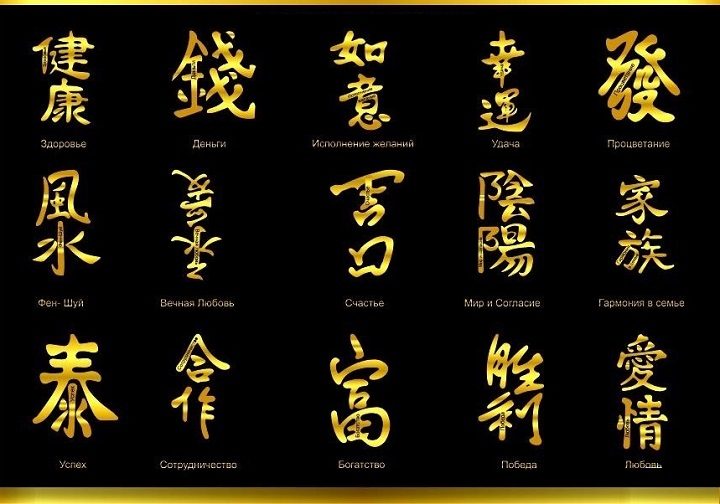 健康 錢 如意 幸運 發
Здоровье Деньги Исполнение желаний Удача Процветание
風水 陰陽 家族
Фен- Шуй Вечная Любовь Счастье Мир и Согласие Гармония в семье
泰 合作 富 勝利 愛情
Успех Сотрудничество Богатство Победа Любовь